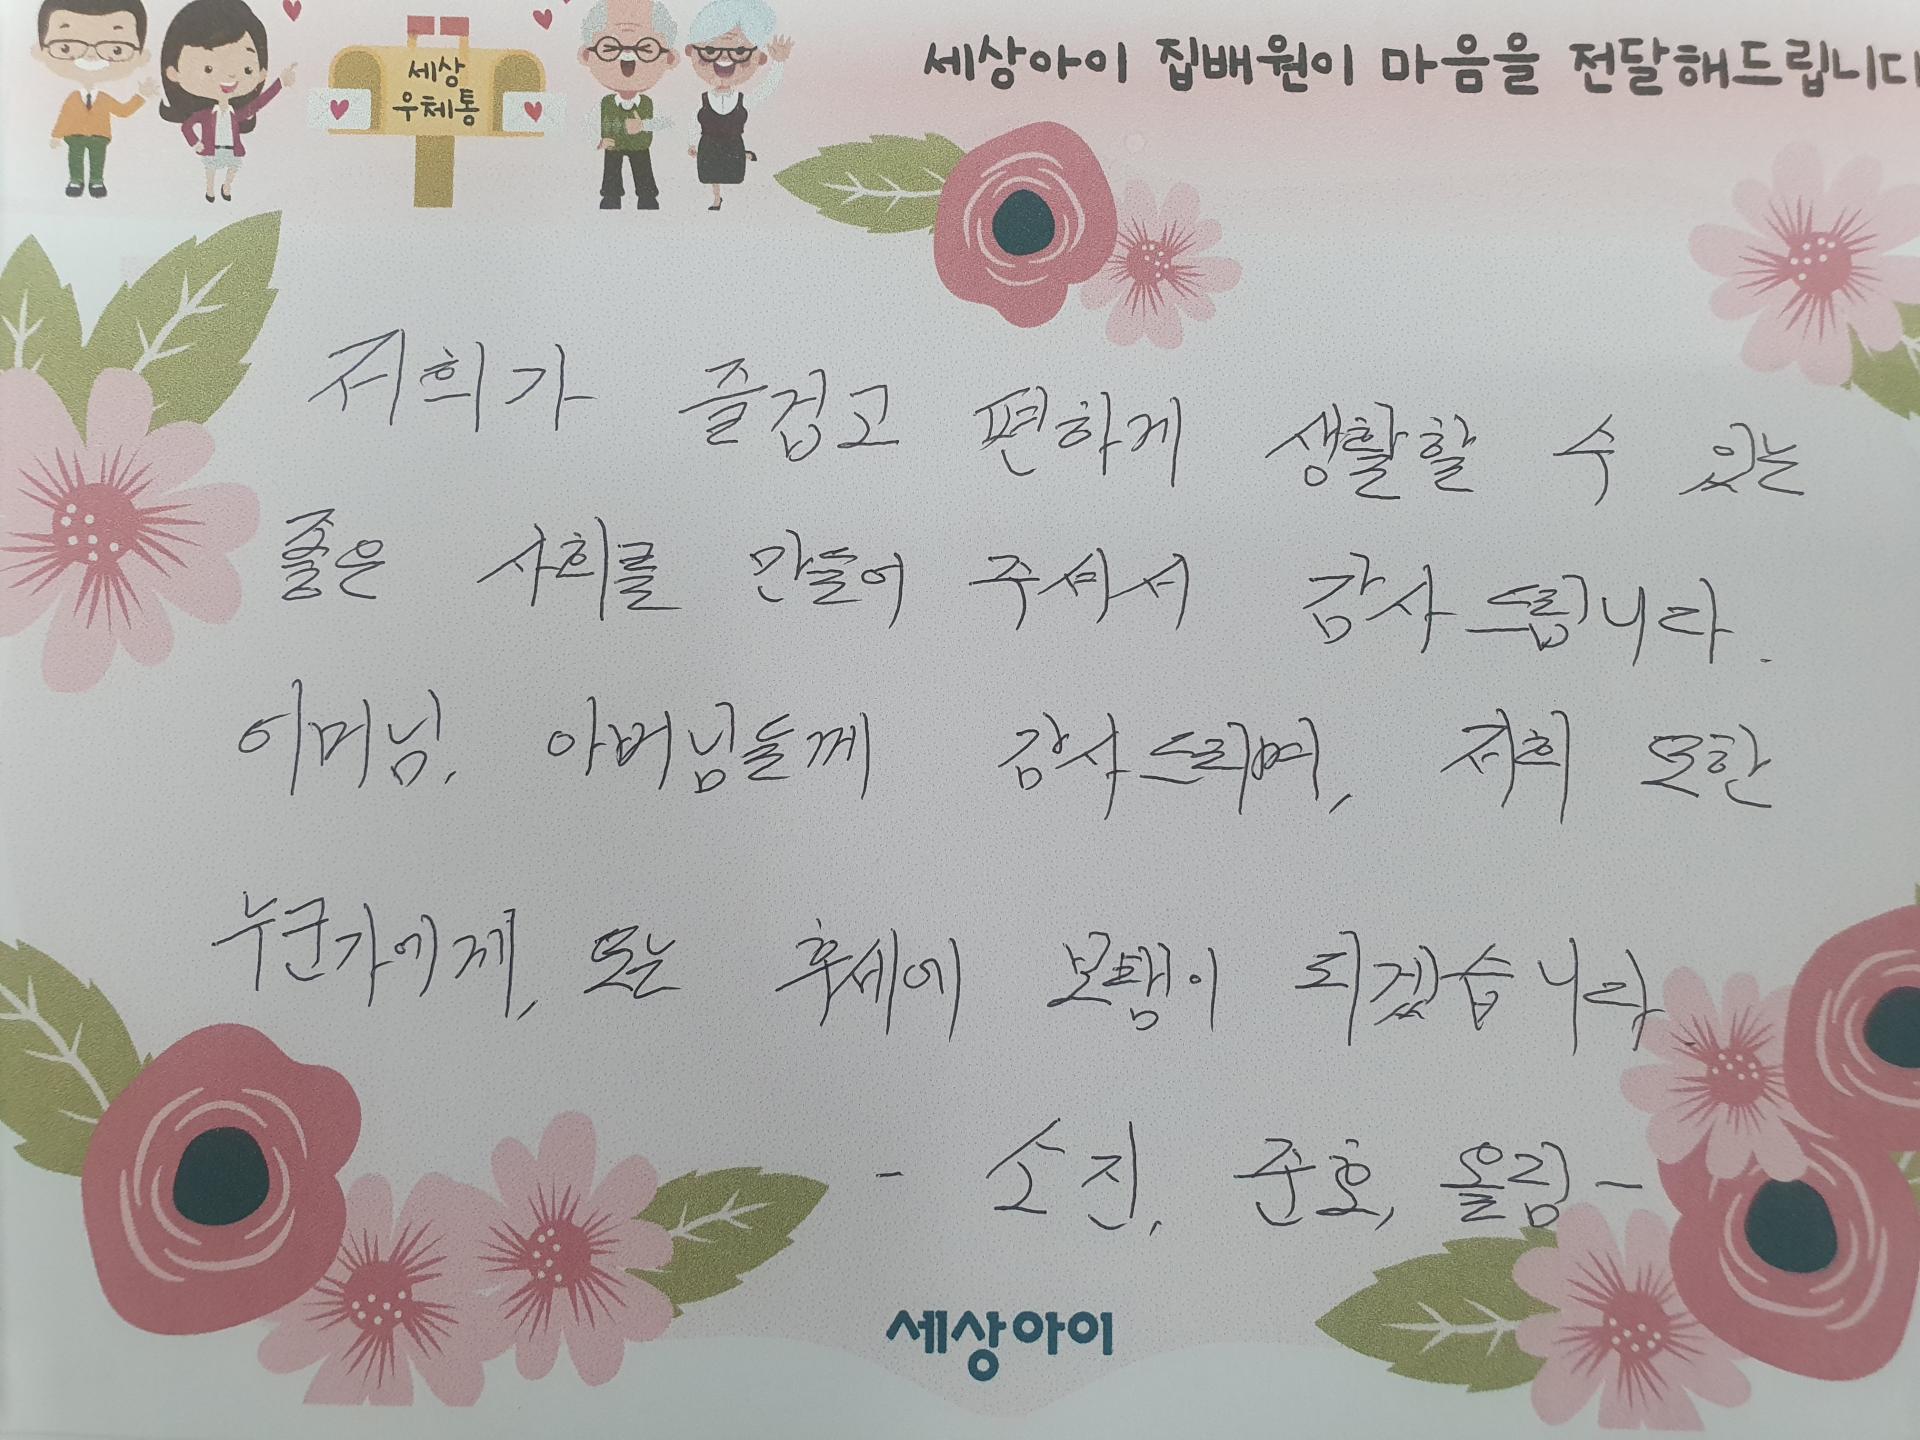 세상
우체통
세상아이 집배원이 마음을 전달해드립니다
저희가 즐겁고 편하게 생활할 수 있는
좋은 사회를 만들어 주셔서 감사드립니다.
어머님, 아버님들께 감사드리며, 저희 또한
누군가에게, 또는 후세에 보탬이 되겠습니다.
- 소진, 준호, 올림 -
세상아이